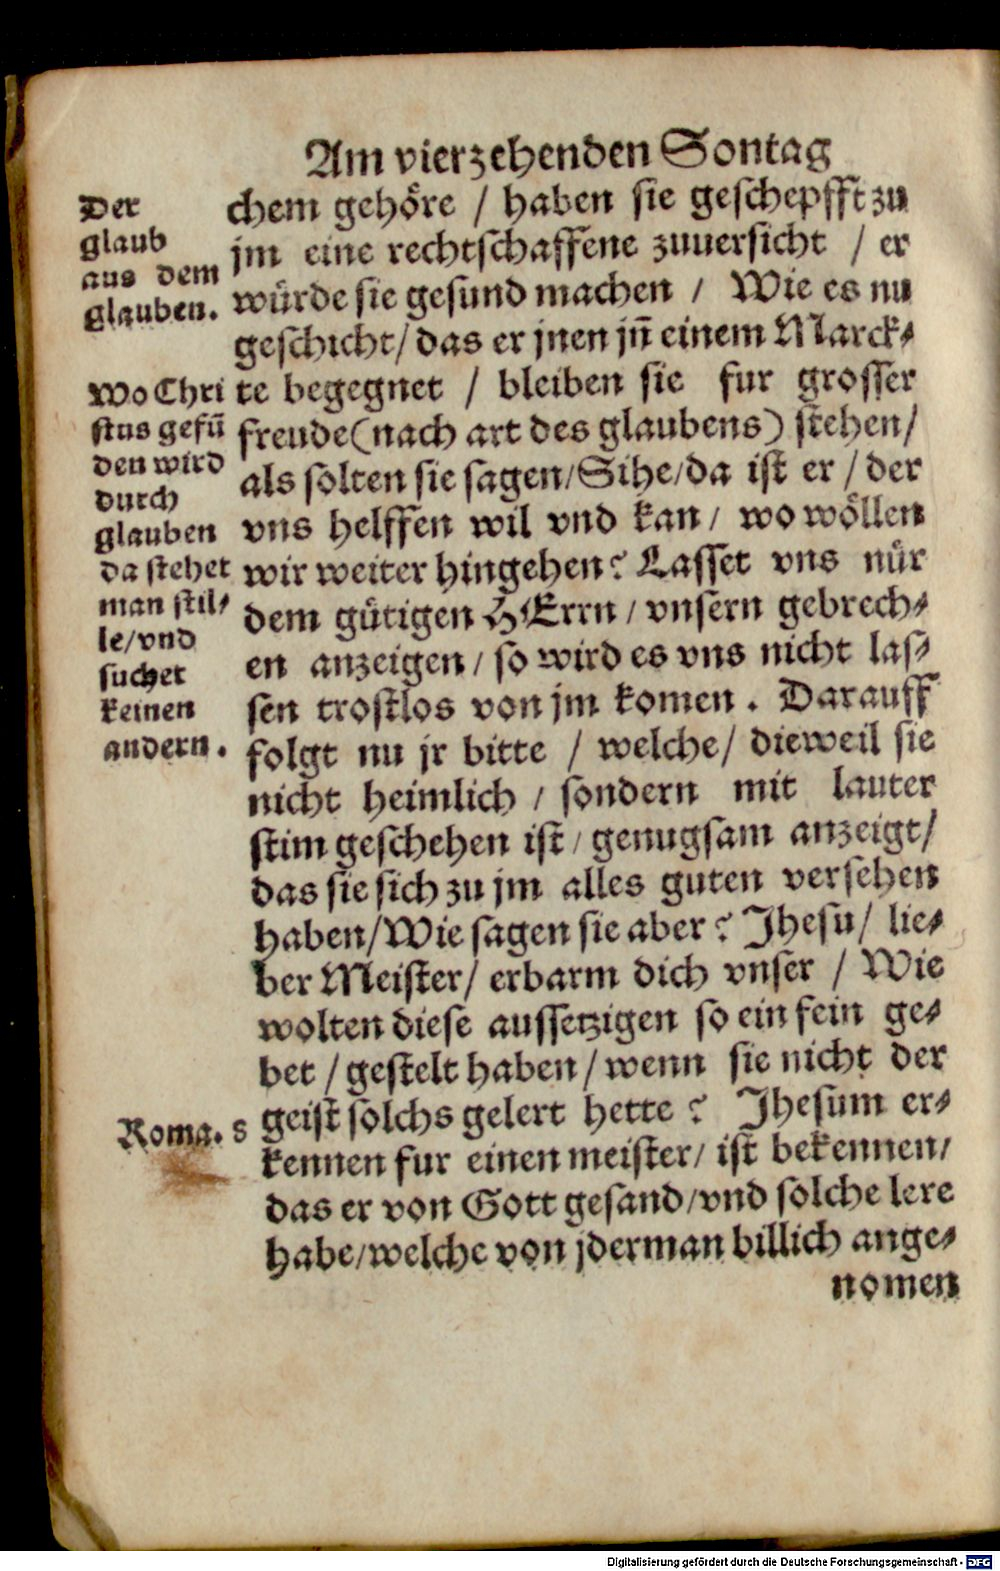 Am vierzehenden Sontag
Der
glaub
aus dem
glauben.
Wo Chri
stus gefū
den wird
durch
glauben
da stehet
man stil⸗
le/vnd
suchet
keinen
andern.
Roma. 8
chem gehöre / haben sie geschepfft zu
jm eine rechtschaffene zuuersicht / er
würde sie gesund machen / Wie es nu
geschicht/ das er jnen jn̄ einem Marck⸗
te begegnet / bleiben sie fur grosser
freude (nach art des glaubens) stehen/
als solten sie sagen/Sihe/da ist er / der
vns helffen wil vnd kan/ wo wöllen
wir weiter hingehen? Lasset vns nür
dem gütigen HErrn / vnsern gebrech⸗
en anzeigen/ so wird es vns nicht las⸗
sen trostlos von jm komen. Darauff
folgt nu jr bitte / welche/ dieweil sie
nicht heimlich / sondern mit lauter
stim geschehen ist/ genugsam anzeigt/
das sie sich zu jm alles guten versehen
haben/Wie sagen sie aber? Jhesu/ lie⸗
ber Meister/ erbarm dich vnser / Wie
wolten diese aussetzigen so ein fein ge⸗
bet / gestelt haben/ wenn sie nicht der
geist solchs gelert hette? Jhesum er⸗
kennen fur einen meister/ ist bekennen/
das er von Gott gesand/vnd solche lere
habe/welche von jderman billich ange⸗
nomen
Digitalisierung gefördert durch die Deutsche Forschungsgemeinschaft - DFG